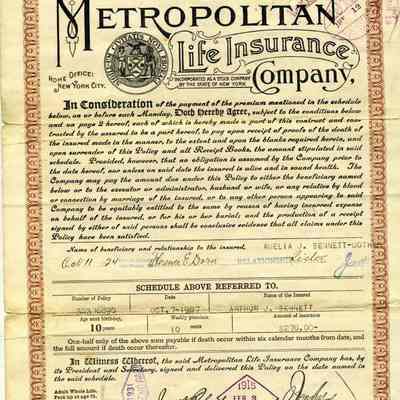 METROPOLITAN
Life Insurance
Company,
HOME OFFICE:
NEW YORK CITY.
INCORPORATED AS A STOCK COMPANY
BY THE STATE OF NEW YORK.
In Consideration of the payment of the premium mentioned in the schedule
below, on or before each Monday, Doth Hereby Agree, subject to the conditions below
and on page 2 hereof, each of which is hereby made a part of this contract and con-
tracted by the assured to be a part hereof, to pay upon receipt of proofs of the death of
the insured made in the manner, to the extent and upon the blanks required herein, and
upon surrender of this Policy and all Receipt Books, the amount stipulated in said
schedule. Provided, however, that no obligation is assumed by the Company prior to
the date hereof, nor unless on said date the insured is alive and in sound health. The
Company may pay the amount due under this Policy to either the beneficiary named
below or to the executor or administrator, husband or wife, or any relative by blood
or connection by marriage of the insured, or to any other person appearing to said
Company to be equitably entitled to the same by reason of having incurred expense
on behalf of the insured, or for his or her burial; and the production of a receipt
signed by either of said persons shall be conclusive evidence that all claims under this
Policy have been satisfied.
Name of beneficiary and relationship to the insured.
AMELIA J. BENNETT-
Oct 11 24 RELATIONSHIP Sister
SCHEDULE ABOVE REFERRED TO.
Number of Policy Date Name of the Insured
OCT. 7-1897 ARTHUR J. BENNETT
Age next birthday, Weekly premium Amount of insurance
10 years 10 cents $270.00
One-half only of the above sum payable if death occur within six calendar months from date, and
the full amount if death occur thereafter.
In Witness Whereof, the said Metropolitan Life Insurance Company has, by
its President and Secretary, signed and delivered this Policy on the date named in
said schedule.
Adult Whole Life.
1915
FEB